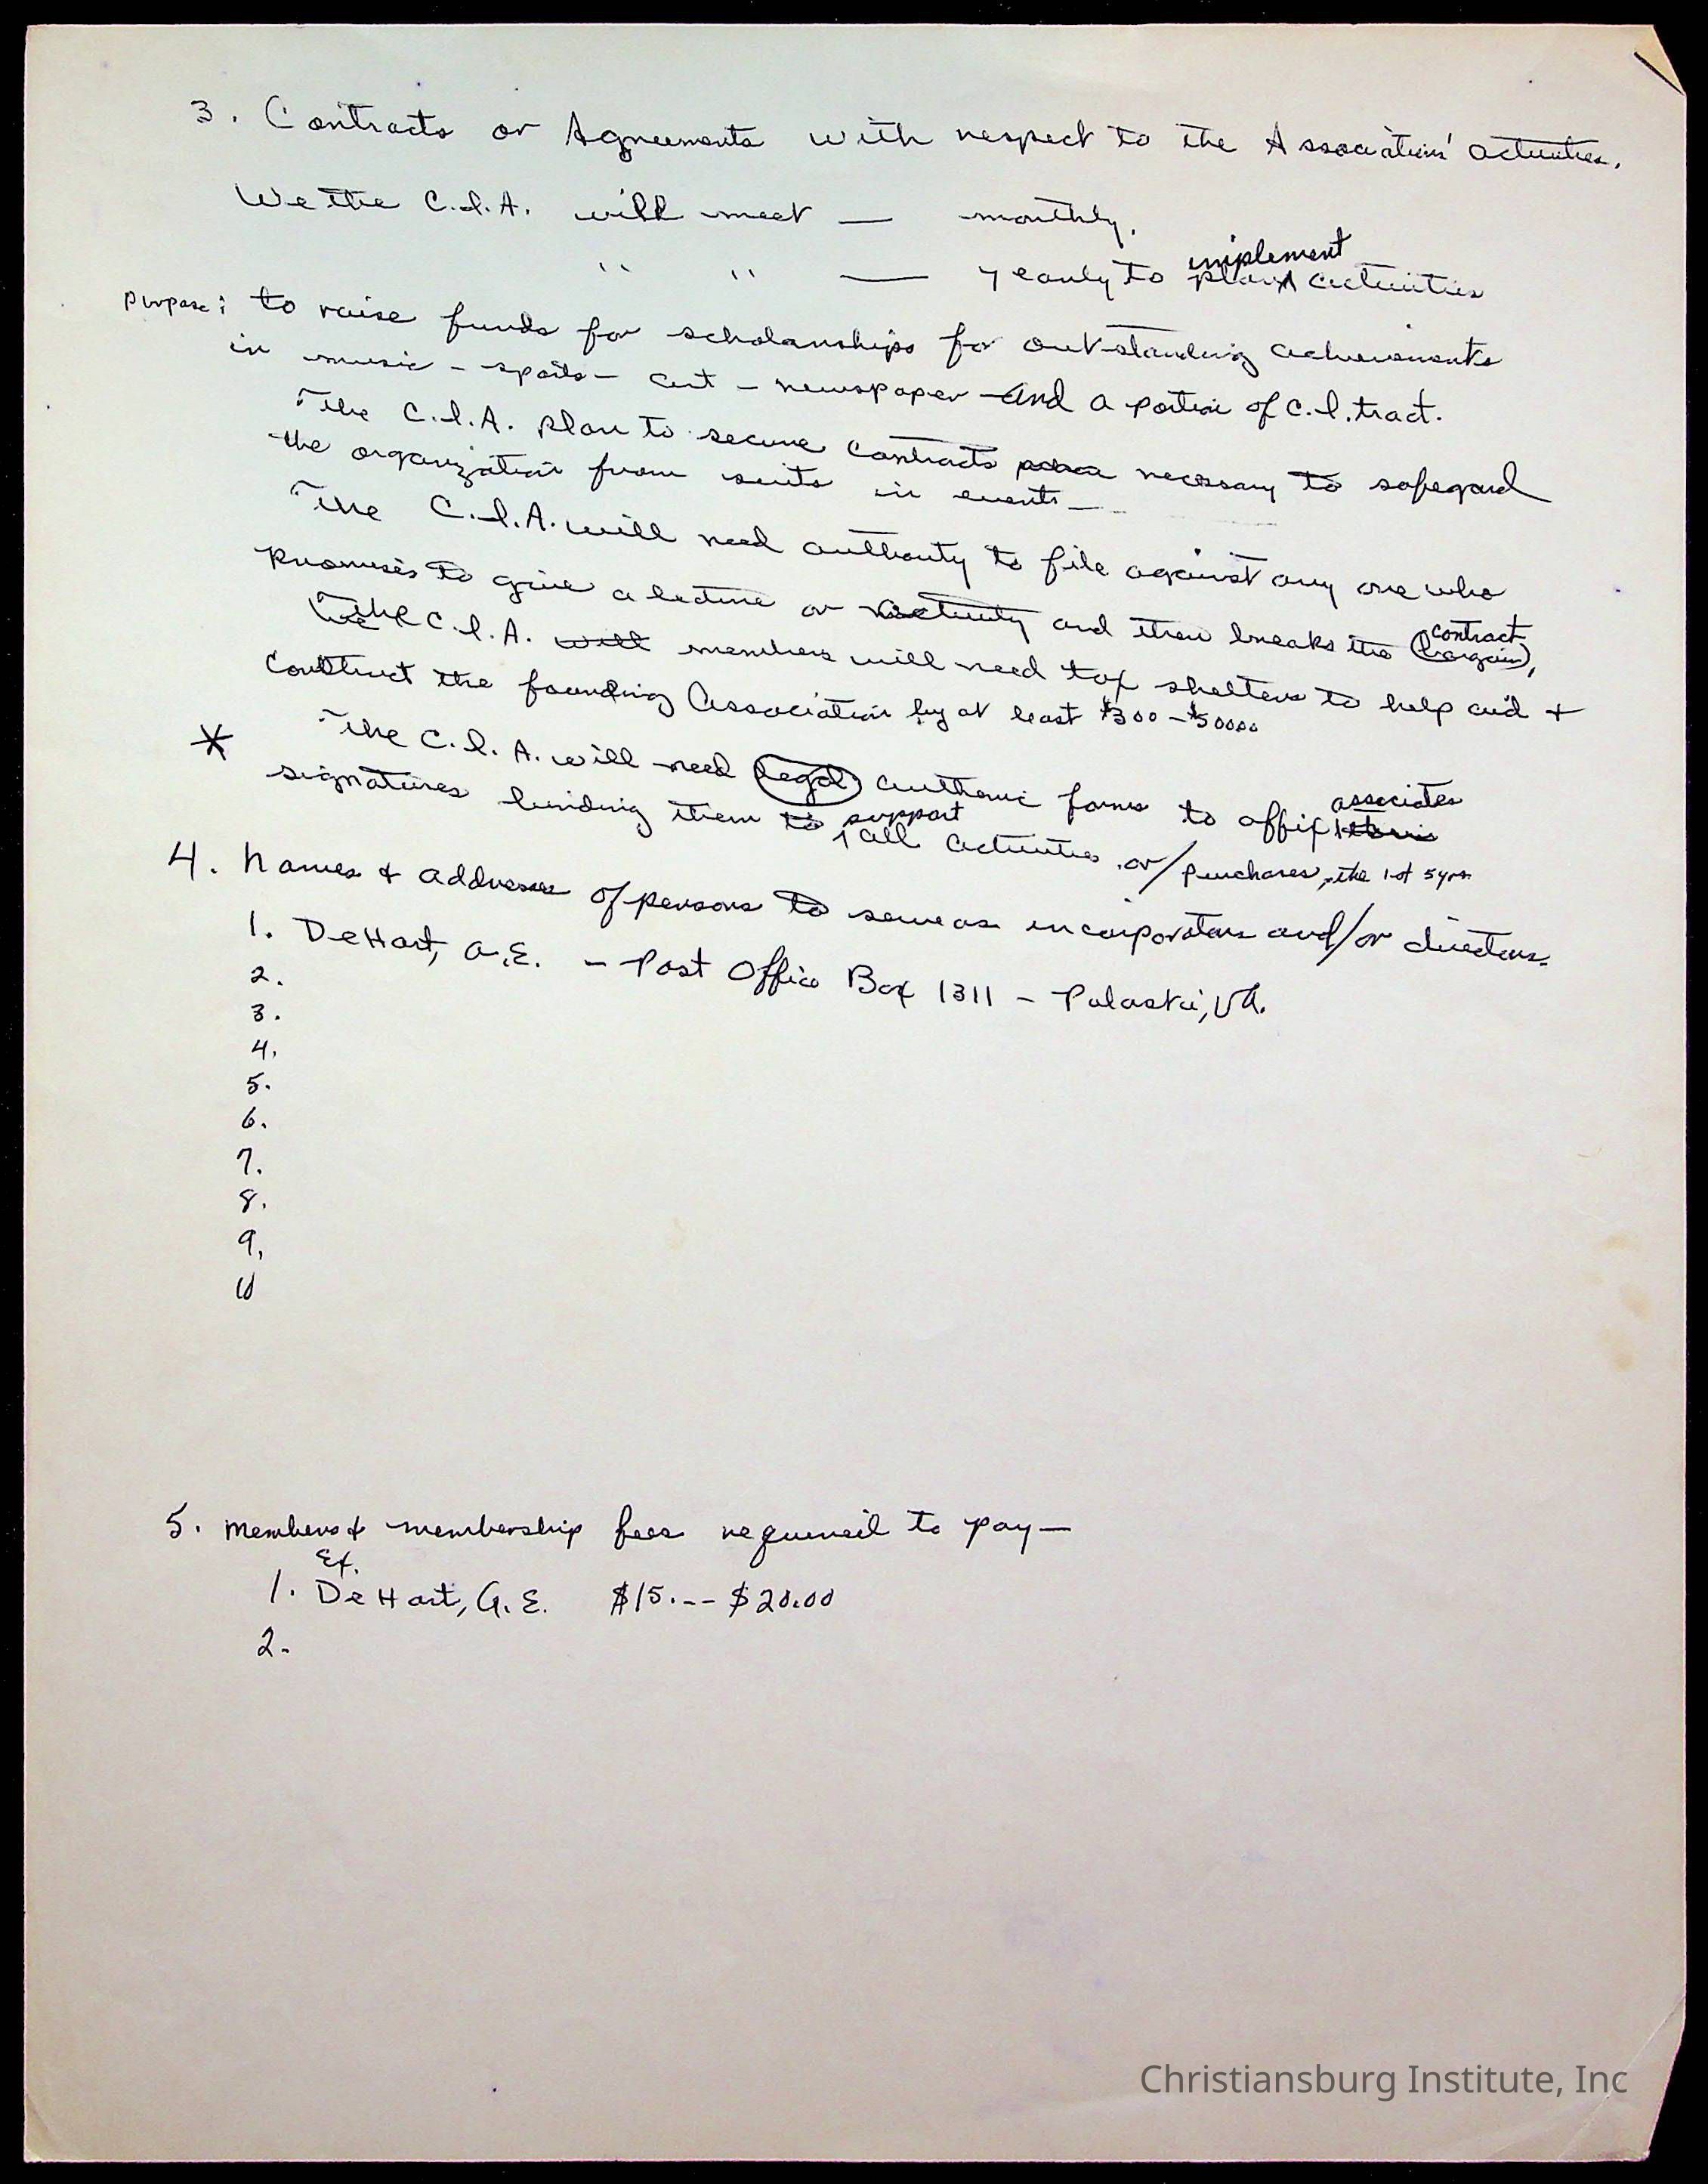 3. Contracts or Agreements with respect to the Associations' activities.
We the C.I.A. will meet — monthly.
" " — yearly to plan implement activities
Purpose: to raise funds for scholarships for outstanding achievements
in music - sports - art - newspaper - and a portion of C.I. tract.
The C.I.A. plan to secure contracts necessary to safegard
the organization from suits in events —
The C.I.A. will need authority to file against any one who
promises to give a lecture or activity and then breaks the (bargain) contract,
The C.I.A. will members will need tax shelters to help aid +
construct the founding Association by at least $300 - $50000
* The C.I.A. will need legal authentic forms to affix associates
signatures binding them to support all activities or/purchases, the 1st 5yrs
4. Names & addresses of persons to serve as incorporators and/or directors.
1. DeHart, A.E. - Post Office Box 1311 - Pulaski, VA.
2.
3.
4.
5.
6.
7.
8.
9.
10
5. Members & membership fees required to pay —
Ex.
1. DeHart, A.E. $15.-- $20.00
2.
Christiansburg Institute, Inc